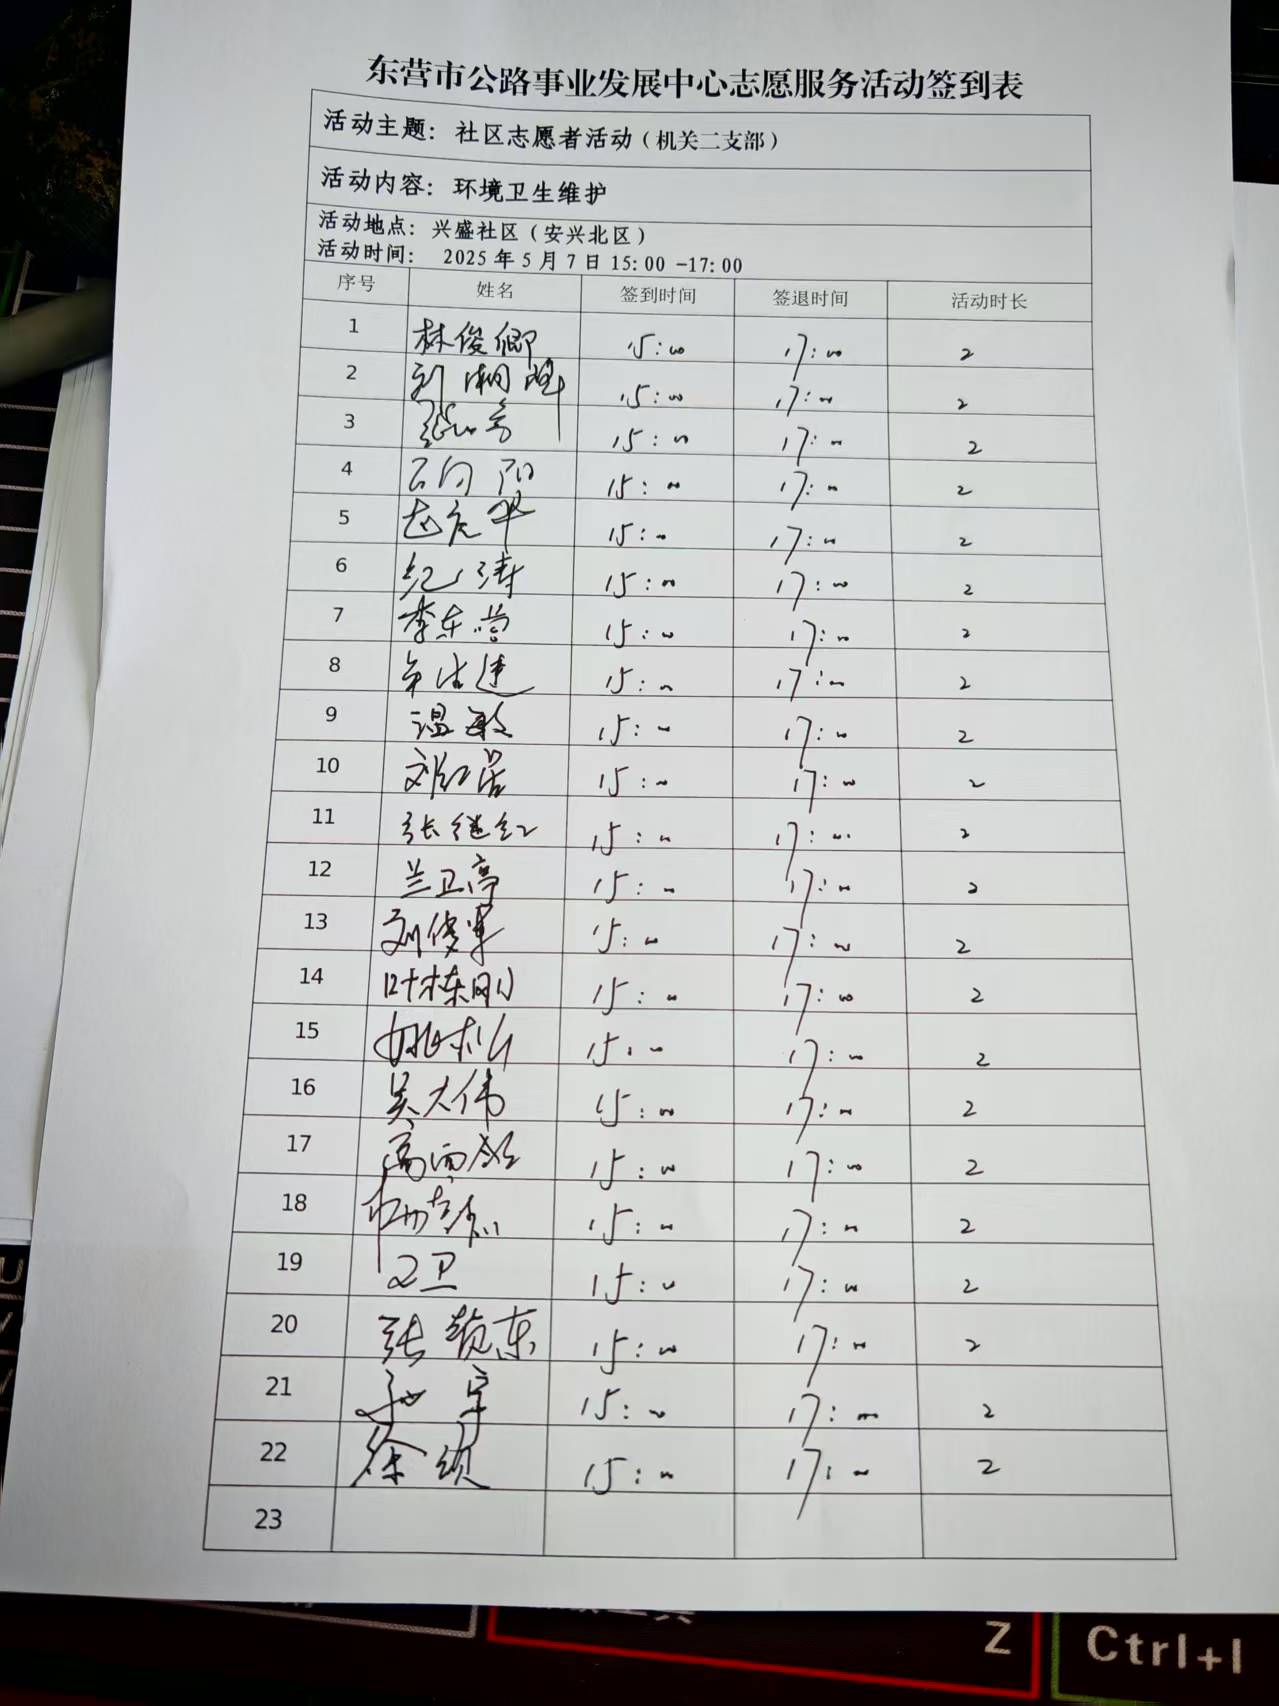 东营市公路事业发展中心志愿服务活动签到表
活动主题：社区志愿者活动（机关二支部）
活动内容：环境卫生维护
活动地点：兴盛社区（安兴北区）
活动时间： 2025年5月7日15:00-17:00
序号 姓名 签到时间 签退时间 活动时长
1 林俊卿 15:00 17:00 2
2 刘 15:00 17:00 2
3 张 15:00 17:00 2
4 石向阳 15:00 17:00 2
5 赵 15:00 17:00 2
6 纪涛 15:00 17:00 2
7 李东营 15:00 17:00 2
8 15:00 17:00 2
9 温敏 15:00 17:00 2
10 刘红 15:00 17:00 2
11 张继红 15:00 17:00 2
12 兰卫亮 15:00 17:00 2
13 刘俊军 15:00 17:00 2
14 叶栋刚 15:00 17:00 2
15 姚 15:00 17:00 2
16 吴大伟 15:00 17:00 2
17 高雨 15:00 17:00 2
18 15:00 17:00 2
19 卫 15:00 17:00 2
20 张 东 15:00 17:00 2
21 孟宇 15:00 17:00 2
22 徐 15:00 17:00 2
23
Z
Ctrl+I